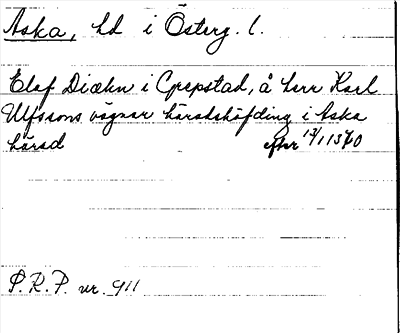 Aska, hd i Österg. l.
Elof Diækn i Grepstad, å herr Karl
Ulfssons vägnar häradshöfding i Aska
härad efter 13/1 1370
S.R.P. nr. 911